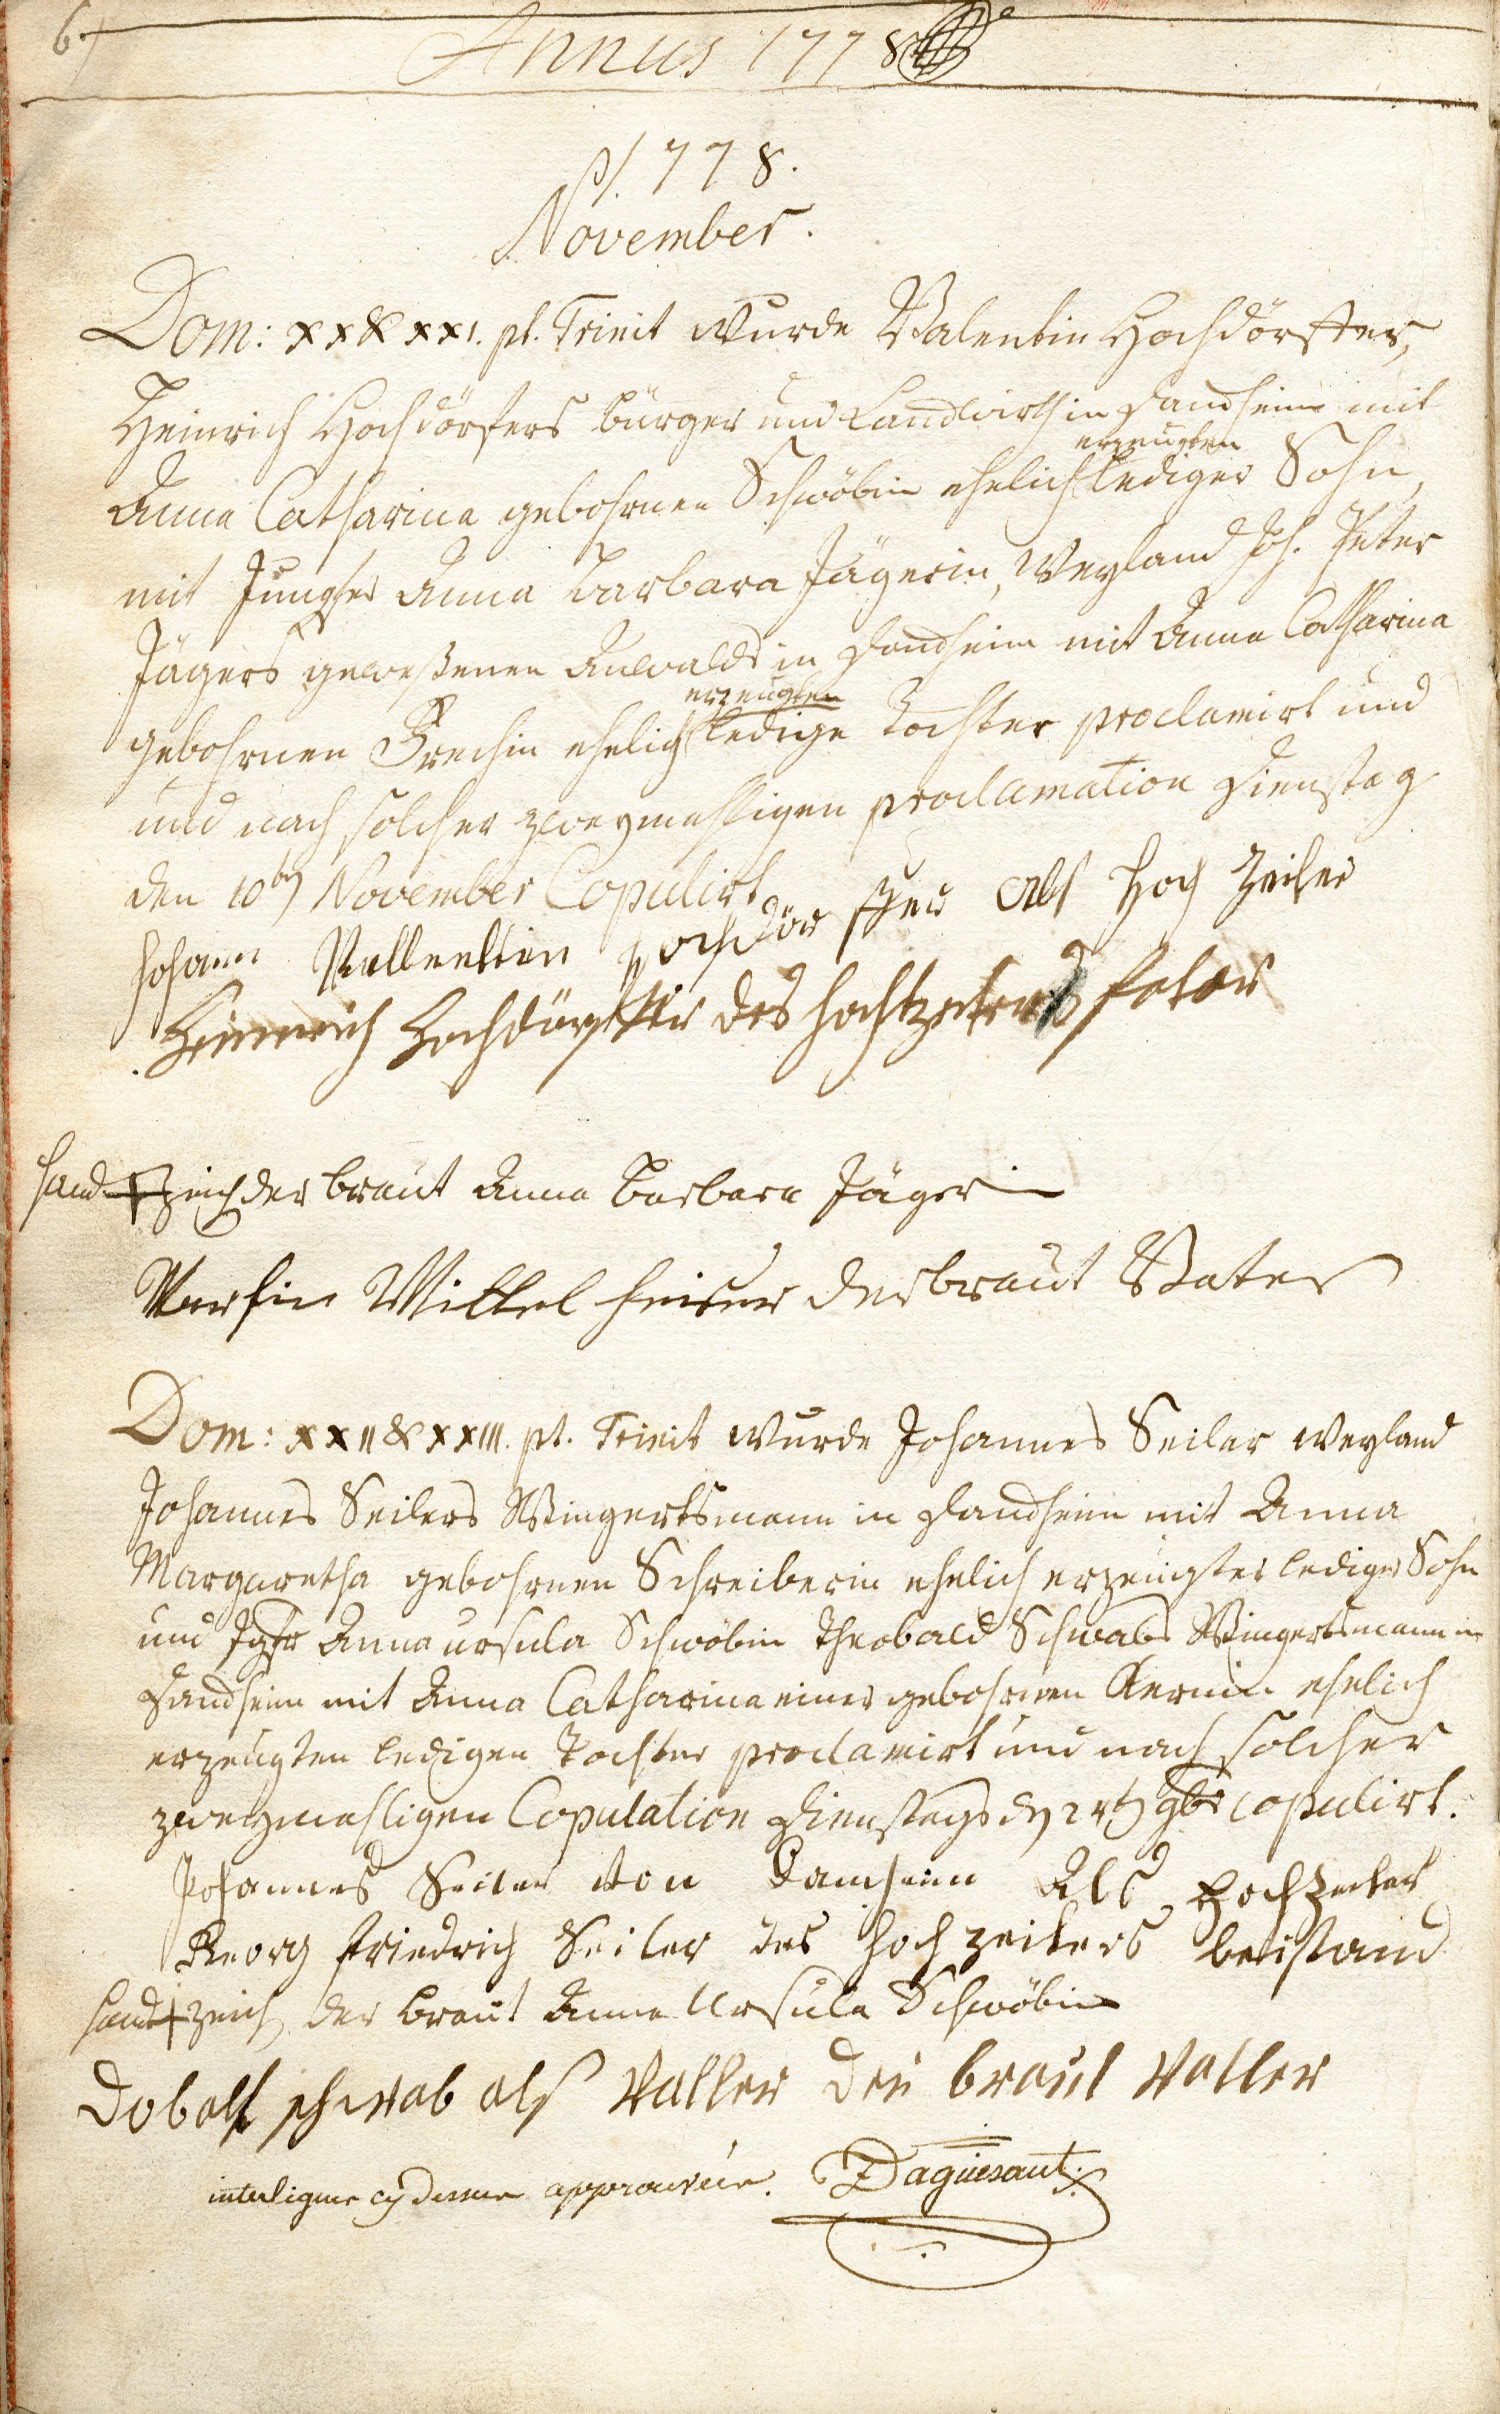 6.
Annus 1778
1778.
November.
Dom: XX & XXI. pt. Trinit wurde Valentin Hochdörffer,
Heinrich Hochdörfers bürger und Landwirth in Damheim mit
erzeugten
Anna Catharina gebohrnen Schwöbin ehelich lediger Sohn,
mit Jungfer Anna Barbara Jägerin, Weyland Joh. Peter
Jägers geweßenen Anwalds in Damheim mit Anna Catharina
erzeugten
gebohrnen Frechin ehelich ledige Tochter proclamirt und
und nach solcher zweymahligen proclamation Dienstag
den 10ten November Copulirt
Johann Vallentin Hochdörffer als Hoch Zeiter
Heinrich Hochdörffer des hochtzeiters fater
hand zeich der braut Anna Barbara Jägerin
Wilhel der braut Vater
Dom: XXII & XXIII. pt. Trinit wurde Johannes Seiler weyland
Johannes Seilers Wingertsmann in Damheim mit Anna
Margaretha gebohrnen Schreiberin ehelich erzeugter lediger Sohn
und Jgfr Anna ursula Schwöbin Theobald Schwabs Wingertsmann in
Damheim mit Anna Catharina einer gebohrnen Kernin ehelich
erzeugten ledigen Tochter proclamirt und nach solcher
zweymahligen Copulation Dienstags d 24ten 9br copulirt.
Johannes Seiler von Damheim Als Hochzeiter
Georg friedrich Seiler des hochzeiters beistand
hand zeich der braut Anna Ursula Schwöbin
Dobalt schwab als Vatter der braut Vatter
interligne cy dessus approuvée. Daguesaut